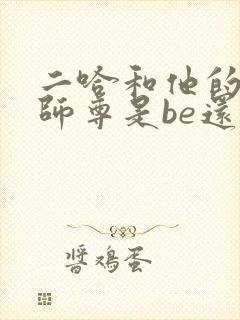 二哈和他的
師尊是be還
醬鸡蛋